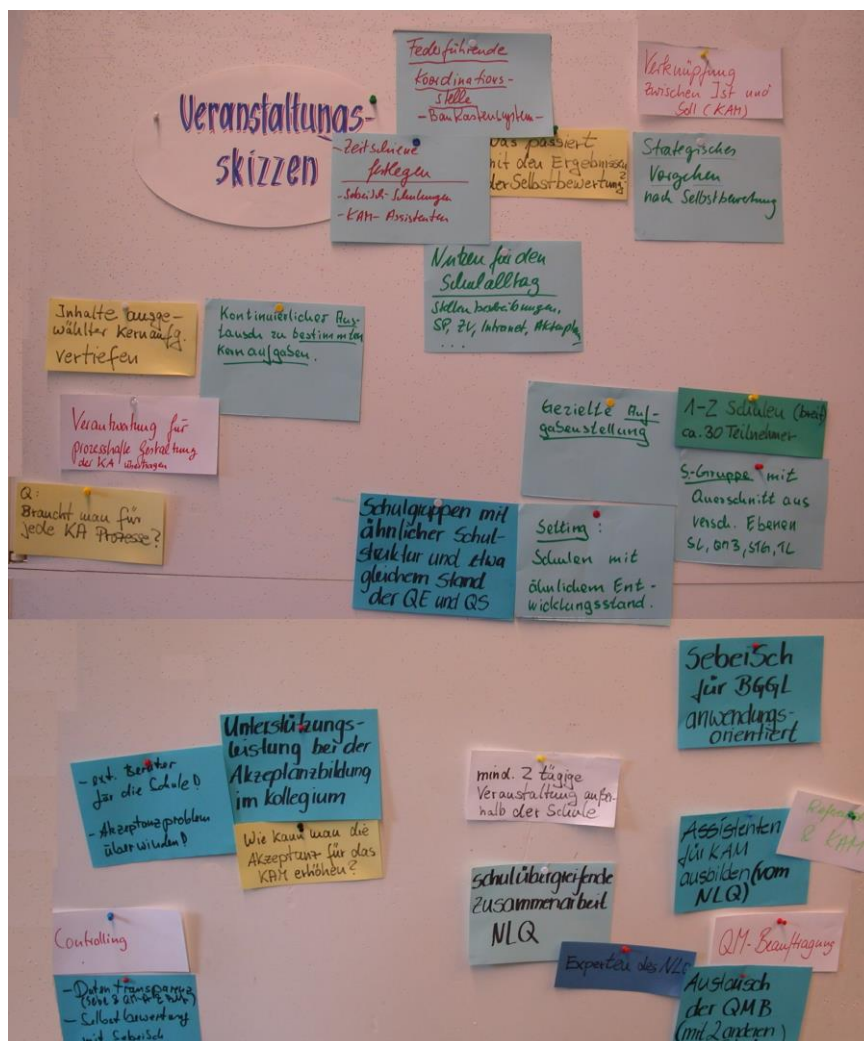 Veranstaltungs-
skizzen
Federführende
Koordinations-
stelle
-Baukastensystem-
Verknüpfung
zwischen Ist und
Soll (KAM)
-Zeitschiene
festlegen
-Sebeisch-Schulungen
-KAM-Assistenten
Was passiert
mit den Ergebnissen
der Selbstbewertung?
Strategisches
Vorgehen
nach Selbstbewertung
Nutzen für den
Schulalltag
Stellenbeschreibungen,
SP, ZV, Intranet, Aktenplan
....
Inhalte ausge-
wählter Kernaufg.
vertiefen
Kontinuierlicher Aus-
tausch zu bestimmten
Kernaufgaben.
Verantwortung für
prozesshafte Gestaltung
der KA übertragen
Q:
Braucht man für
jede KA Prozesse?
Gezielte Auf-
gabenstellung
1-2 Schulen (breit)
ca. 30 Teilnehmer
S.-Gruppe mit
Querschnitt aus
versch. Ebenen
SL, QMB, STG, TL
Schulgruppen mit
ähnlicher Schul-
struktur und etwa
gleichem Stand
der QE und QS
Setting:
Schulen mit
ähnlichem Ent-
wicklungsstand.
Sebeisch
für BGGL
anwendungs-
orientiert
- ext. Berater
für die Schule!
- Akzeptanzproblem
überwinden!
Unterstützungs-
leistung bei der
Akzeptanzbildung
im Kollegium
Wie kann man die
Akzeptanz für das
KAM erhöhen?
mind. 2 tägige
Veranstaltung außer-
halb der Schule
Assistenten
für KAM
ausbilden (vom
NLQ)
& KAM
schulübergreifende
Zusammenarbeit
NLQ
Experten des NLQ
QM-Beauftragung
Austausch
der QMB
(mit 2 anderen)
Controlling
-Datentransparenz
-Selbstbewertung
mit Sebeisch